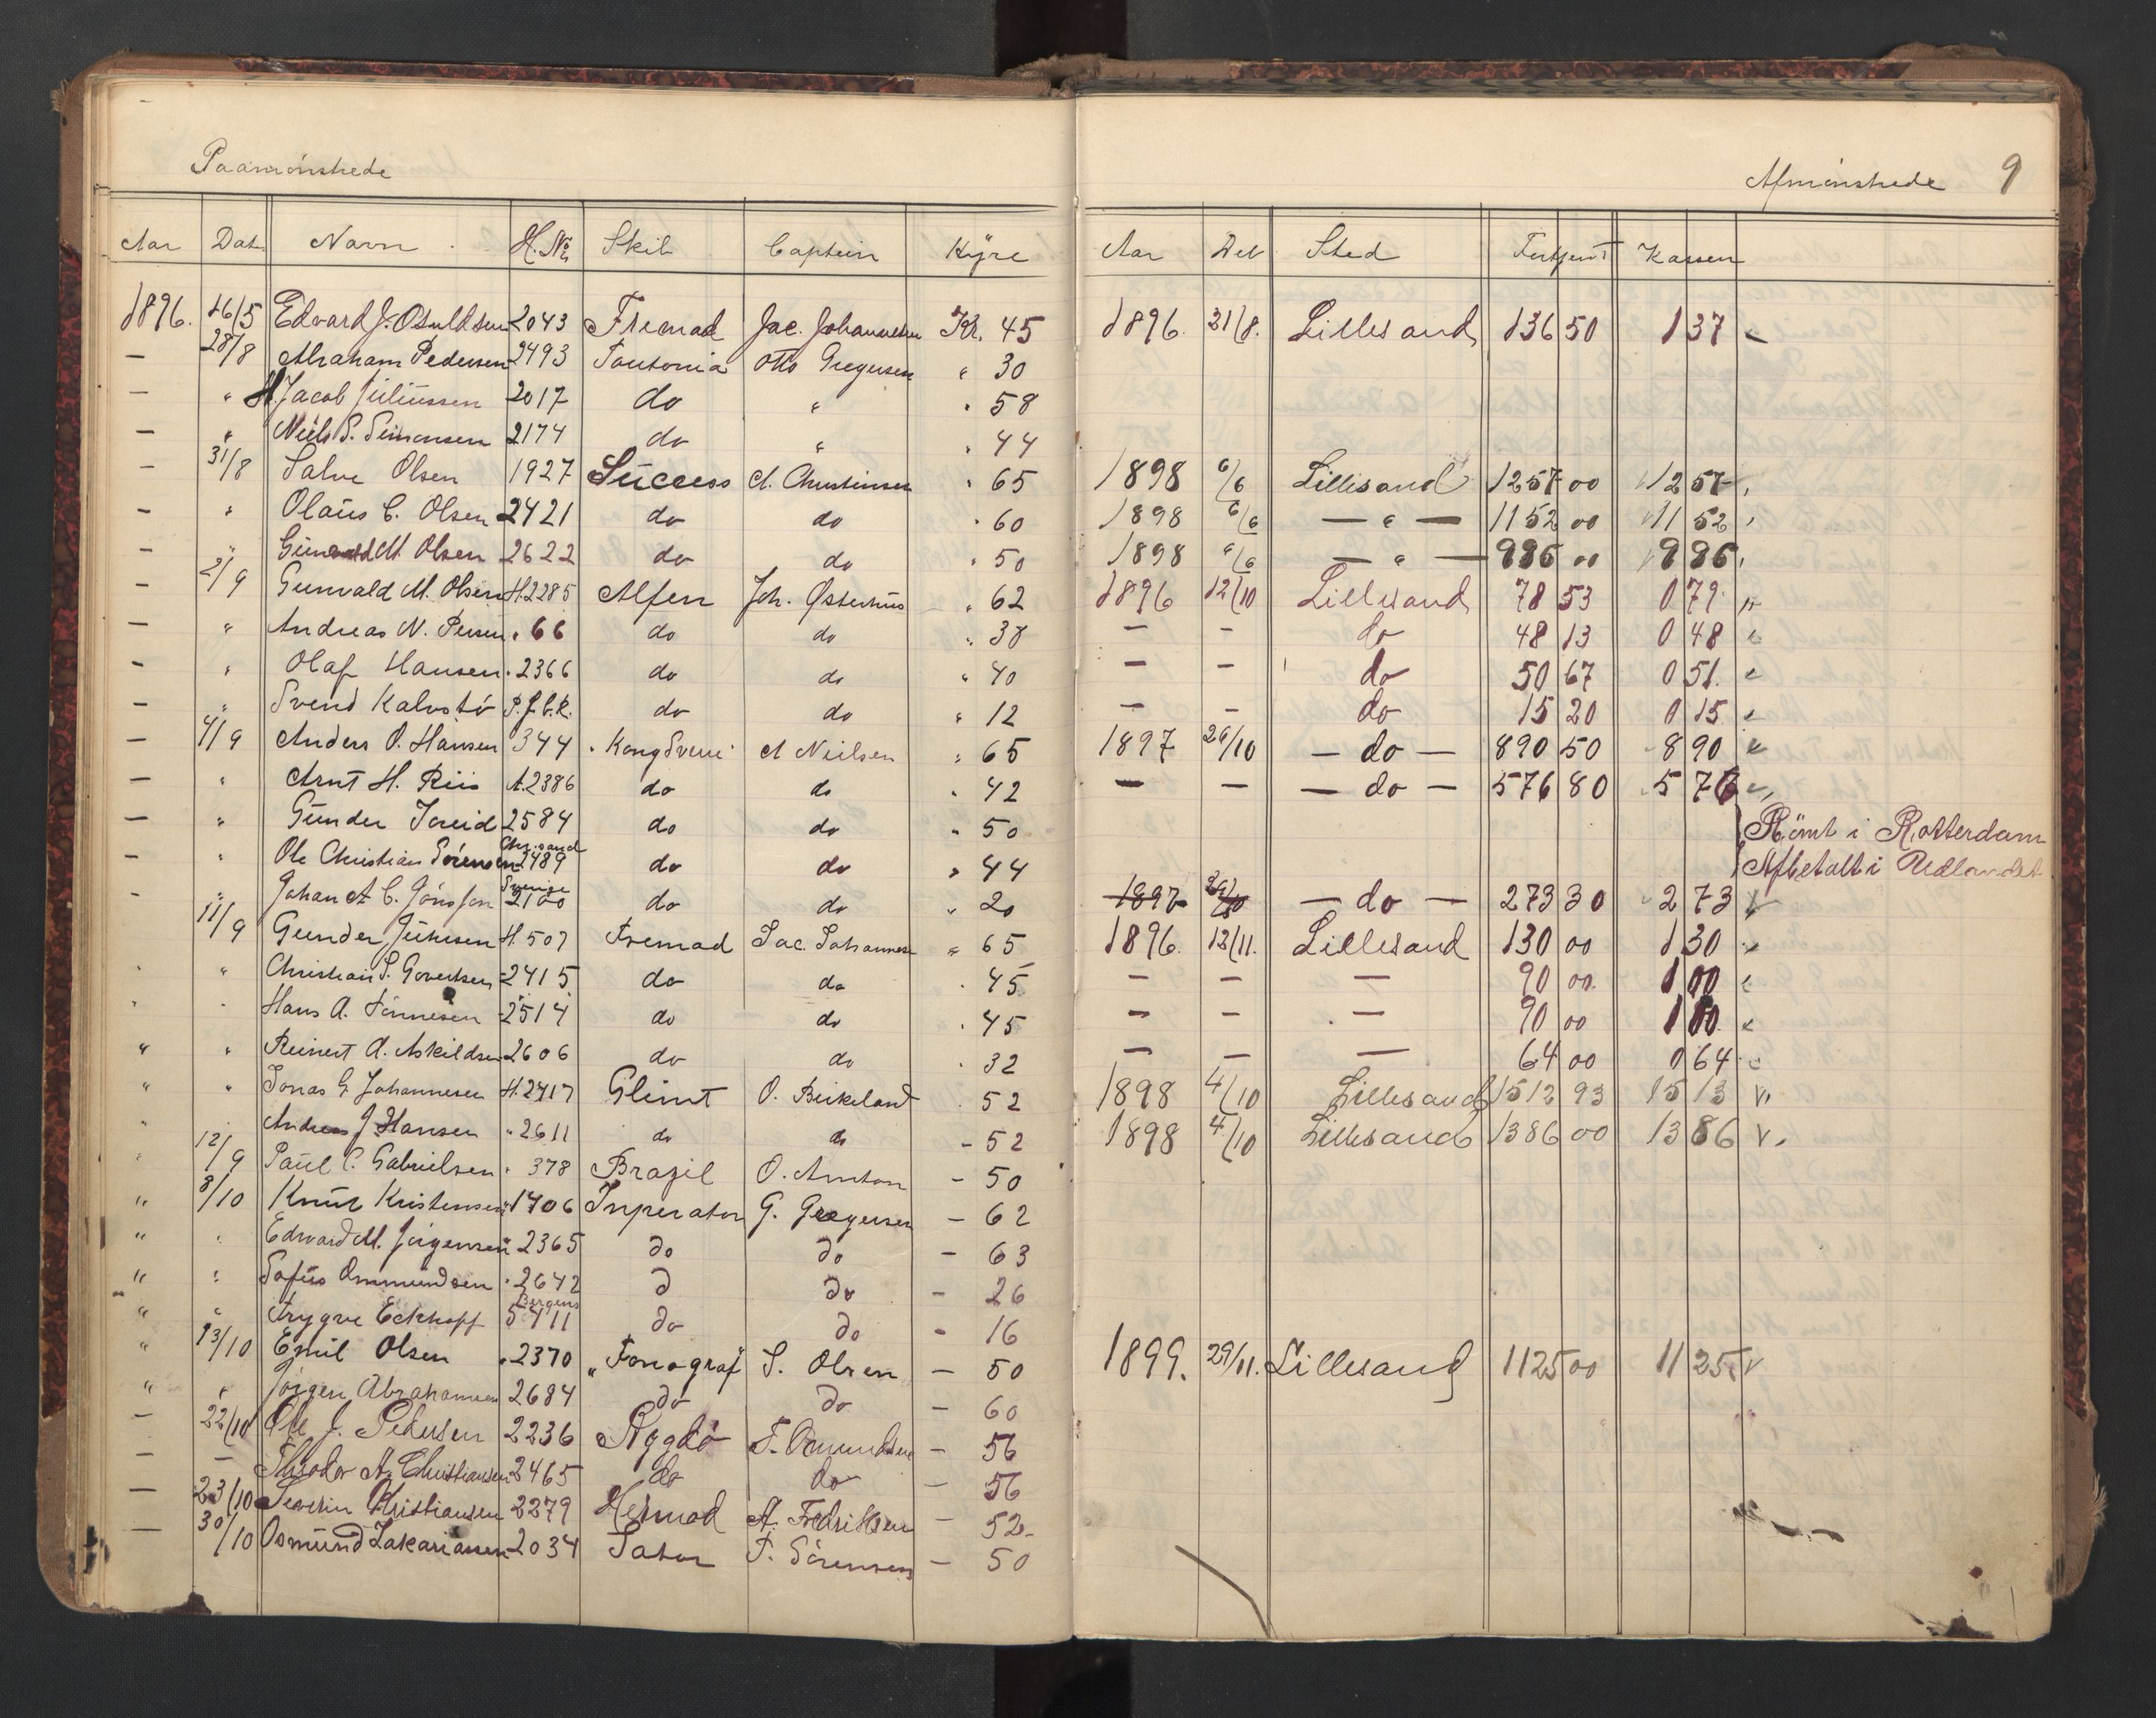 Paamönstrede
Afmönstrede 9
Aar Dat Navn H. No Skib Captein Hyre Aar Dat Sted Fortjent Kassen
1896. 16/5 Edvard J. Osuldsen 2043 Fremad Jac. Johannesen Kr. 45 1896. 31/8. Lillesand 136 50 1 37 "
— 28/8 Abraham Pedersen 2493 Teutonia Otto Gregersen " 30
— " H. Jacob Juliussen 2017 do " " 58
— " Niels S. Simonsen 2174 do " " 44
— 31/8 Salve Olsen 1927 Success A. Christensen " 65 1898 6/6 Lillesand 1257 00 1257
— " Olaus C. Olsen 2421 do do " 60 1898 6/6 — " — 1152 00 1152
— " Gunvald M Olsen 2622 do do " 50 1898 6/6 — " — 986 00 986
— 2/9 Gunvald M. Olsen H. 2285 Alfen Joh. Østerhus " 62 1896 12/10 Lillesand 78 53 0 79 "
— " Andreas N. Persen " 66 do do " 38 — — do 48 13 0 48 "
— " Olaf Hansen " 2366 do do " 40 — — do 50 67 0 51. "
— " Svend Kalvstö do do " 12 — — do 15 20 0 15 "
— 4/9 Anders O. Hansen 344 "Kong Sverre" A Nielsen " 65 1897 26/10 — do — 890 50 890 "
— " Arnt H. Riis A. 2386 do do " 42 — — — do — 576 80 576 "
— " Gunder Tveid 2584 do do " 50 Römt i Rotterdam
— " Ole Christian Sörensen Chr.sand 2489 do do " 44 Afbetalt i Udlandet
— " Johan A C. Jönsson Sverige 2100 do do " 20 1897 26/10 — do — 273 30 273 v
11/9 Gunder Juhlsen H. 507 Fremad Jac. Johannesen " 65 1896. 12/11. Lillesand 130 00 1 30 "
" " Christian S. Govertsen 2415 do do " 45 — — — 90 00 1 00 "
" " Hans A. Tönnesen 2514 do do " 45 — — — 90 00 1 00. "
" " Reinert A. Askildsen 2606 do do " 32 — — — 64 00 0 64 "
" " Jonas G Johannesen H. 2417 Glimt O. Birkeland 52 1898 4/10 Lillesand 1512 93 1513 v.
" Andreas J Hansen " 2611 do do - 52 1898 4/10 Lillesand 1386 00 1386 v.
" 12/9 Paul C. Gabrielsen " 378 Brazil O. Amton - 50
" 8/10 Knut Kristensen " 1706 Inperator G. Gregersen — 62
" " Edvard M. Jörgensen " 2365 do do — 63
" " Sofus Ommundsen " 2642 d do — 26
" " Trygve Eckhoff Bergens 5411 do do - 16
" 13/10 Emil Olsen " 2370 "Fonograf S. Olsen — 50 1899. 29/11. Lillesand 1125 00 1125. v
" " Jörgen Abrahamsen 2684 do do — 60
— 22/10 Ole J. Pedersen 2236 Rygdö T. Omundsen — 56
— — Theodor A. Christiansen 2465 do do — 56
— 23/10 Severin Christiansen 2279 Hermod A. Fredriksen — 52-
— 30/10 Osmund Zakariassen 2034 Sator T. Sörensen — 50